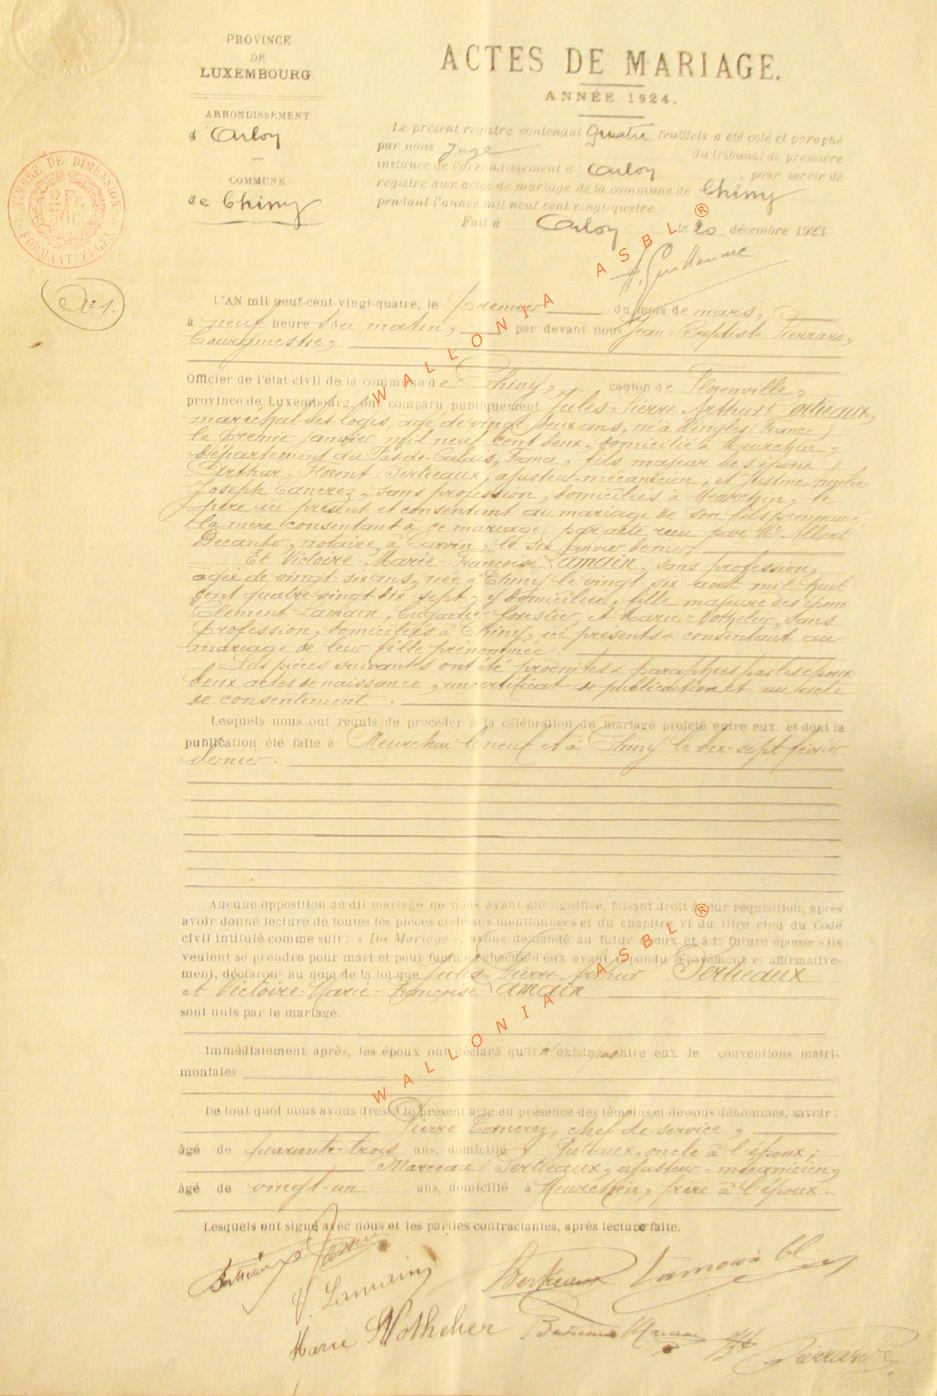 PROVINCE
DE
LUXEMBOURG
ARRONDISSEMENT
d'Arlon
COMMUNE
de Chiny
TIMBRE DE DIMENSION
FORMAAT ZEGEL
N° 1.
ACTES DE MARIAGE.
ANNÉE 1924.
Le présent registre contenant Quatre feuillets a été coté et paraphé
par nous Juge du tribunal de première
instance de l'arrondissement d' Arlon, pour servir de
registre aux actes de mariage de la commune de Chiny
pendant l'année mil neuf cent vingt-quatre.
Fait à Arlon le 20 décembre 1923
Guillaume
L'AN mil neuf-cent-vingt-quatre, le premier du mois de mars,
à neuf heures du matin, par devant nous Jean-Baptiste Pierrard,
bourgmestre,
Officier de l'état-civil de la commune de Chiny, canton de Florenville,
province de Luxembourg, ont comparu publiquement Jules-Pierre-Arthur Bertieaux,
maréchal des logis, âgé de vingt deux ans, né à Wingles (France)
le premier janvier mil neuf cent deux, domicilié à Meurchin,
département du Pas-de-Calais, France, fils majeur des époux
Arthur-Florent Bertieaux, ajusteur-mécanicien, et Justine
Joseph Tancrez, sans profession, domiciliés à Meurchin, le
père ici présent et consentant au mariage de son fils prénommé,
la mère consentant à ce mariage par acte reçu par Me Albert
Decanto, notaire, à Carvin, le six janvier dernier
Et Victoire-Marie-Françoise Lamain, sans profession,
âgée de vingt six ans, née à Chiny le vingt six août mil huit
cent quatre vingt dix sept, y domiciliée, fille majeure des époux
Clément Lamain, brigadier forestier, et Marie Nothelier, sans
profession, domiciliés à Chiny, ici présents & consentant au
mariage de leur fille prénommée.
Les pièces suivantes ont été produites & paraphées par les époux
deux actes de naissance, un certificat de publication et un acte
de consentement.
Lesquels nous ont requis de procéder à la célébration du mariage projeté entre eux, et dont la
publication été faite à Meurchin le neuf et à Chiny le dix-sept février
dernier.
Aucune opposition au dit mariage ne nous ayant été signifiée, faisant droit à leur réquisition, après
avoir donné lecture de toutes les pièces ci-dessus mentionnées et du chapitre VI du titre cinq du Code
civil intitulé comme suit : « Du Mariage », avons demandé au futur époux et à la future épouse s'ils
veulent se prendre pour mari et pour femme, chacun d'eux ayant répondu séparément et affirmative-
ment, déclarons au nom de la loi que Jules-Pierre-Arthur Bertieaux
et Victoire-Marie-Françoise Lamain
sont unis par le mariage.
Immédiatement après, les époux ont déclaré qu'il n'existe pas entre eux de conventions matri-
moniales
De tout quoi nous avons dressé le présent acte en présence des témoins ci-dessous dénommés, savoir :
Pierre Tancrez, chef de service,
âgé de quarante-trois ans, domicilié à Puteaux, oncle à l'époux;
Marceau Bertieaux, ajusteur-mécanicien,
âgé de vingt-un ans, domicilié à Meurchin, frère à l'époux.
Lesquels ont signé avec nous et les parties contractantes, après lecture faite.
Bertieaux
Lamain
Bertieaux Lamain Cl
Marie Nothelier
Pierrard
WALLONIA ASBL ®
WALLONIA ASBL ®